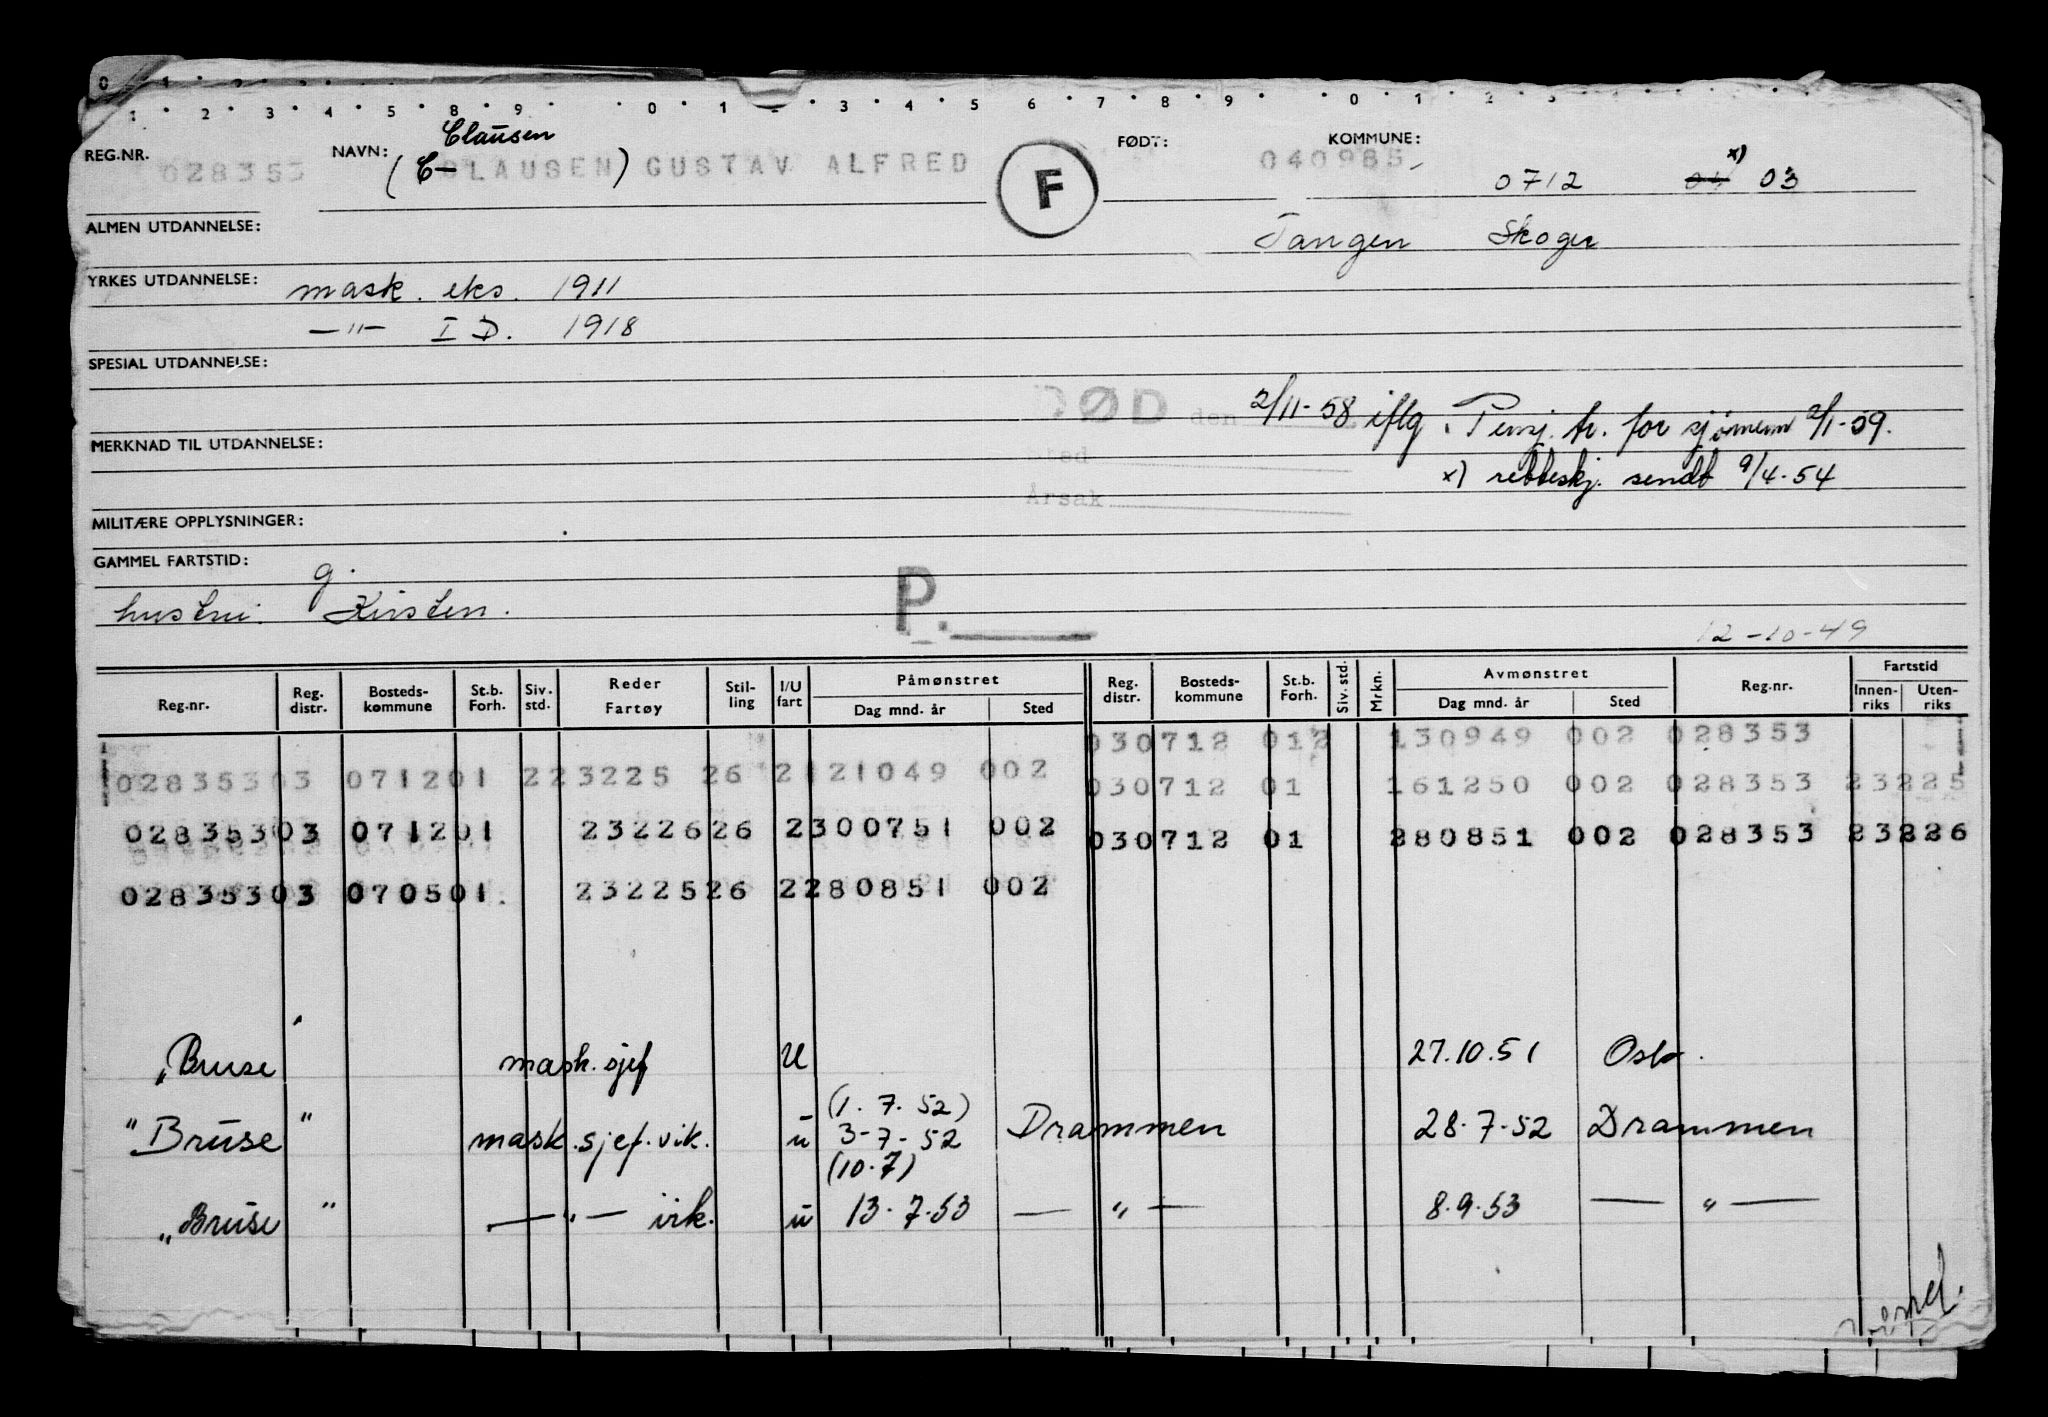 1 2 3 4 5 8 9 0 1 3 4 5 6 7 8 9 0 1 2 3
Clausen
REG.NR. 028353 NAVN: (C- CLAUSEN) GUSTAV ALFRED F FØDT: 040985 KOMMUNE: 0712 04 x) 03
ALMEN UTDANNELSE: Tangen Skoger
YRKES UTDANNELSE: mask. eks. 1911
—"— I D. 1918
SPESIAL UTDANNELSE:
DØD den 2/11-58 iflg. Pensj. tr. for sjømenn 2/1-59.
MERKNAD TIL UTDANNELSE: Sted
x) retteskj. sendt 9/4-54
Årsak
MILITÆRE OPPLYSNINGER:
GAMMEL FARTSTID: g.
hustru: Kirsten. P.
12-10-49
Reg.nr. Reg. distr. Bosteds-kommune St.b. Forh. Siv. std. Reder Fartøy Stil-ling I/U fart Påmønstret Dag mnd. år Sted Reg. distr. Bosteds-kommune St.b. Forh. Siv. std. Mrkn. Avmønstret Dag mnd. år Sted Reg.nr. Fartstid Innen-riks Uten-riks
030712 012 130949 002 028353
02835303 071201 223225 26 2121049 002 030712 01 161250 002 028353 23225
02835303 071201 2322626 2300751 002 030712 01 280851 002 028353 23226
02835303 070501. 2322526 2280851 002
"Bruse" mask. sjef U 27.10.51 Oslo.
(1.7.52)
"Bruse" mask. sjef. vik. u 3-7-52 Drammen 28.7-52 Drammen
(10.7)
"Bruse" —"— vik. u 13.7.53 —"— 8.9.53 —"—